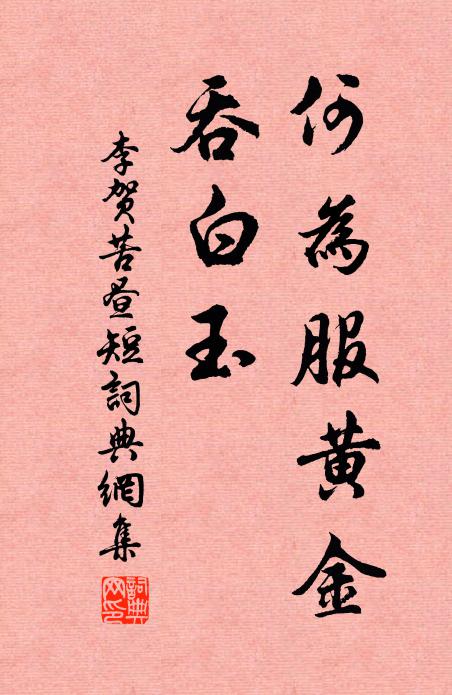 何為服黃金
吞白玉
李賀苦晝短詞典網集
詞典
网印